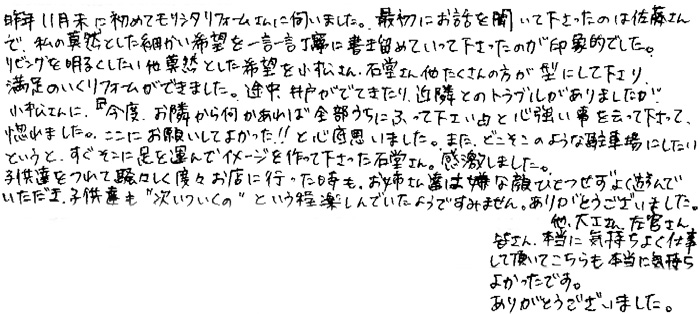 昨年11月末に初めてモリシタリフォームさんに伺いました。最初にお話を聞いて下さったのは佐藤さん
で、私の莫然とした細かい希望を一言一言丁寧に書き留めていって下さったのが印象的でした。
リビングを明るくしたい他莫然とした希望を小松さん、石堂さん、他たくさんの方が型にして下さり、
満足のいくリフォームができました。途中、井戸がでてきたり、近隣とのトラブルがありましたが
小松さんに、『今度、お隣から何かあれば全部うちにふって下さい』と心強い事を云って下さって、
惚れました。ここにお願いしてよかった!!と心底思いました。また、どこそこのような駐車場にしたい
というと、すぐそこに足を運んでイメージを作って下さった石堂さん。感激しました。
子供達をつれて騒々しく度々お店に行った時も、お姉さん達は嫌な顔ひとつせずよく遊んで
いただき、子供達も"次いついくの"という程楽しんでいたようですみません。ありがとうございました。
他、大工さん、左官さん、
皆さん、本当に気持ちよく仕事
して頂いてこちらも本当に気持ち
よかったです。
ありがとうございました。